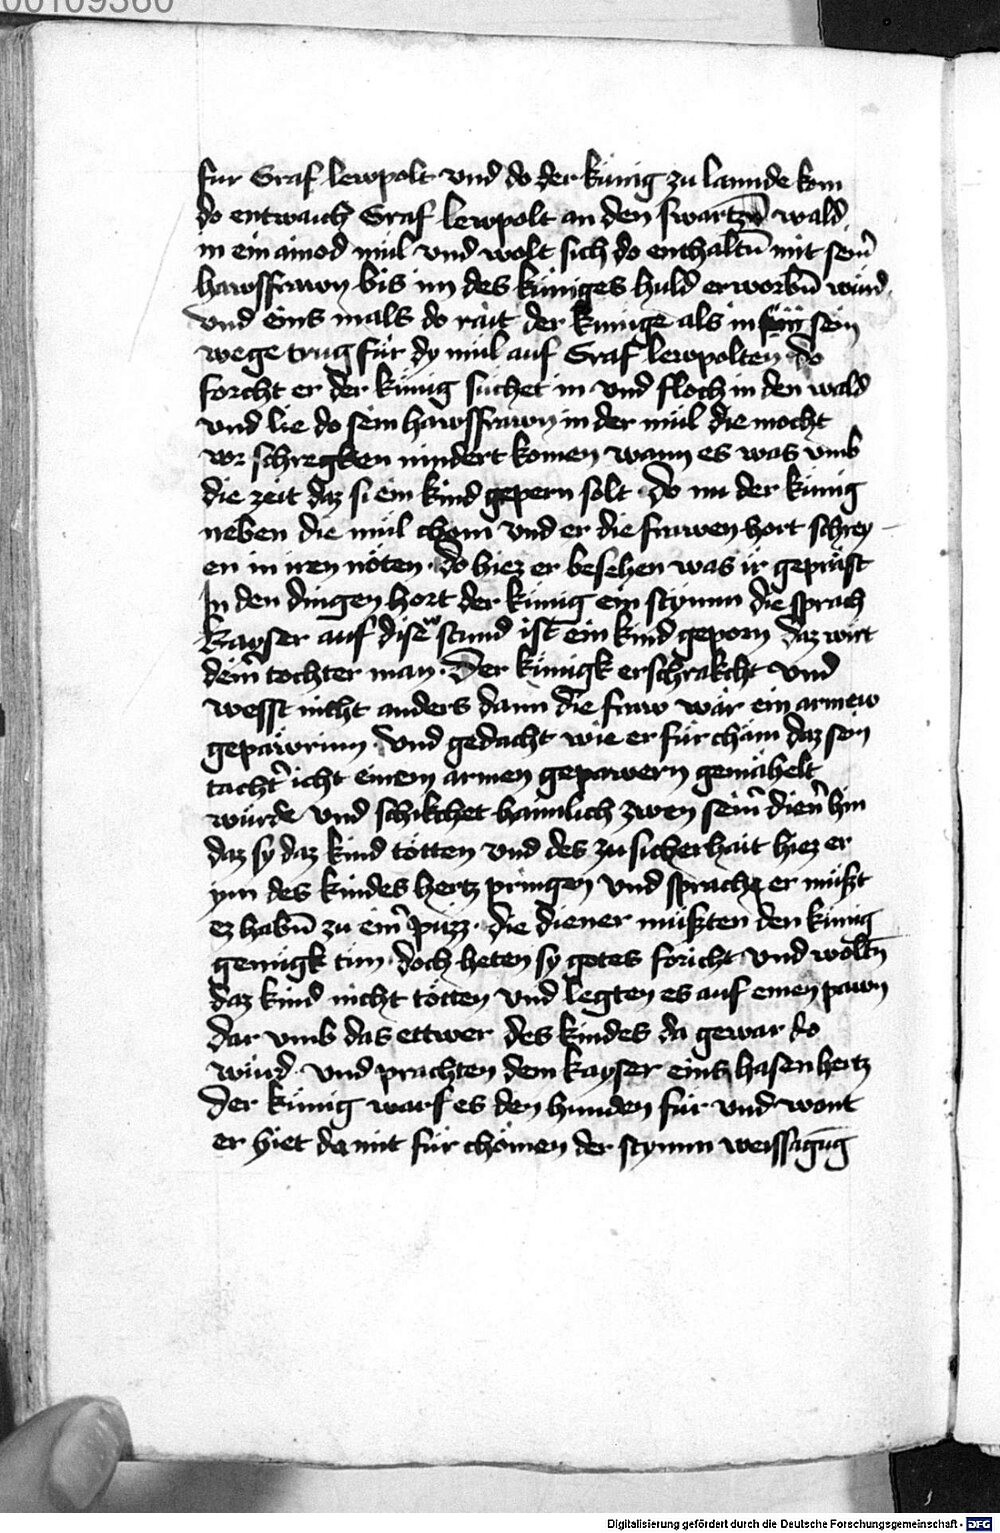 00109380
fur Graf lewpolt vnd do der künig zu lannde kom
do entwaich Graf lewpolt an den swartzn̄ wald
in ein ainod mül vnd wolt sich do enthaltn̄ mit sein̄
hawsfrawn bis im des küniges huld erworbn̄ würd
vnd eins mals do rait der künige als in sein
wege trug für dy mül auf Graf lewpolten do
forcht er der künig süchet in vnd floch in den wald
vnd lie do sein hawsfrawn in der mül die mocht
vor schregken nindert komen wann es was vmb
die zeit daz si ein kind gepern solt do nu der künig
neben die mül chom vnd er die frawen hort schrey
en in iren nöten · do hiez er besehen was ir gepräst
In den dingen hort der künig ein stymm die sprach
kayser auf disew stund ist ein kind geporn daz wirt
dein̄ tochter man · Der künigk erschrakcht vnd
wesst nicht anders dann die fraw wär ein armew
gepäwrinn vnd gedacht wie er für chäm daz sein
tacht̄ icht einem armen gepawern gemähelt
würde vnd schikchet haimlich zwen sein̄ dien̄ hin
daz sy daz kind tötten vnd des zu sicherhait hiez er
ym des kindes hertz pringen vnd sprach er müst
ez habn̄ zu ein̄ püzz · die diener müsten den künig
genügk tün · doch heten sy gotes foricht vnd woltn̄
daz kind nicht tötten vnd legten es auf einen pawn
dar vmb das ettwer des kindes da gewar do
würd · vnd prachten dem kayser eins hasen hertz
Der künig warf es den hunden für vnd want
er hiet da mit für chömen der stymm weissagūg
Digitalisierung gefördert durch die Deutsche Forschungsgemeinschaft - DFG